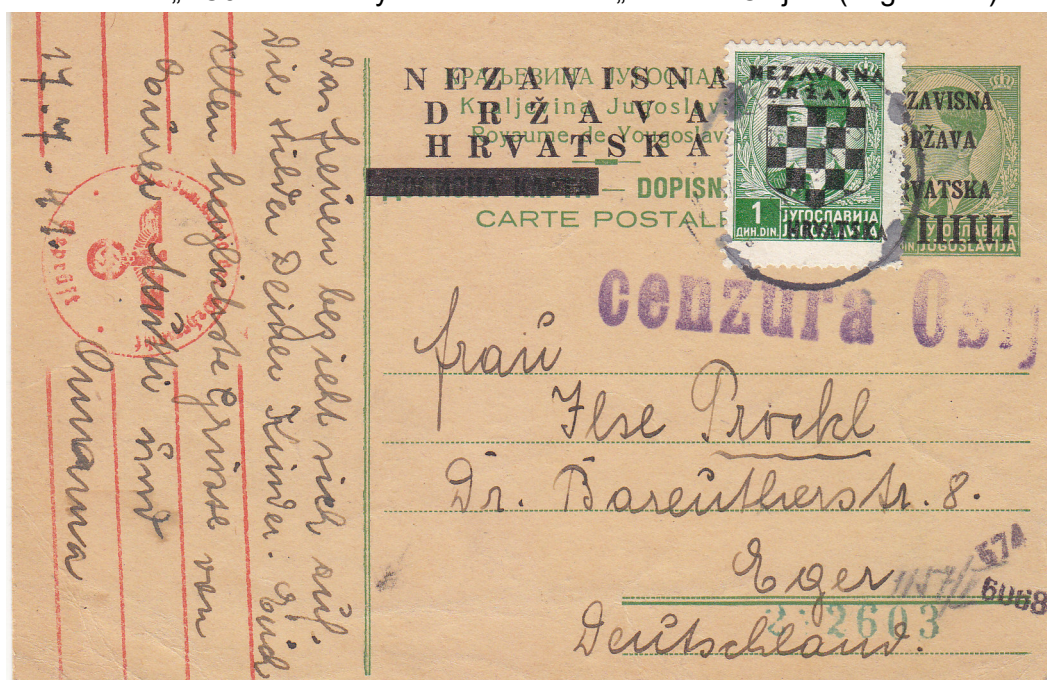 NEZAVISNA
DRŽAVA
HRVATSKA
КРАЉЕВИНА ЈУГОСЛА
Kraljevina Jugoslavi
Royaume de Yougoslav
— DOPISN
CARTE POSTALE
NEZAVISNA
DRŽAVA
1
ДИН.DIN
ЈУГОСЛАВИЈА
HRVATSKA
ZAVISNA
DRŽAVA
RVATSKA
JUGOSLAVIJA
cenzura Osij
Frau
Ilse Prockl
Dr. Bareutherstr. 8.
Eger
Deutschland.
574
6068
1157/
2603
das freuen bezieht sich auf
die Bilder Deider Kinder. Euch
allen herzlichste Grüsse von
Deiner Mutti und
Omama
17.